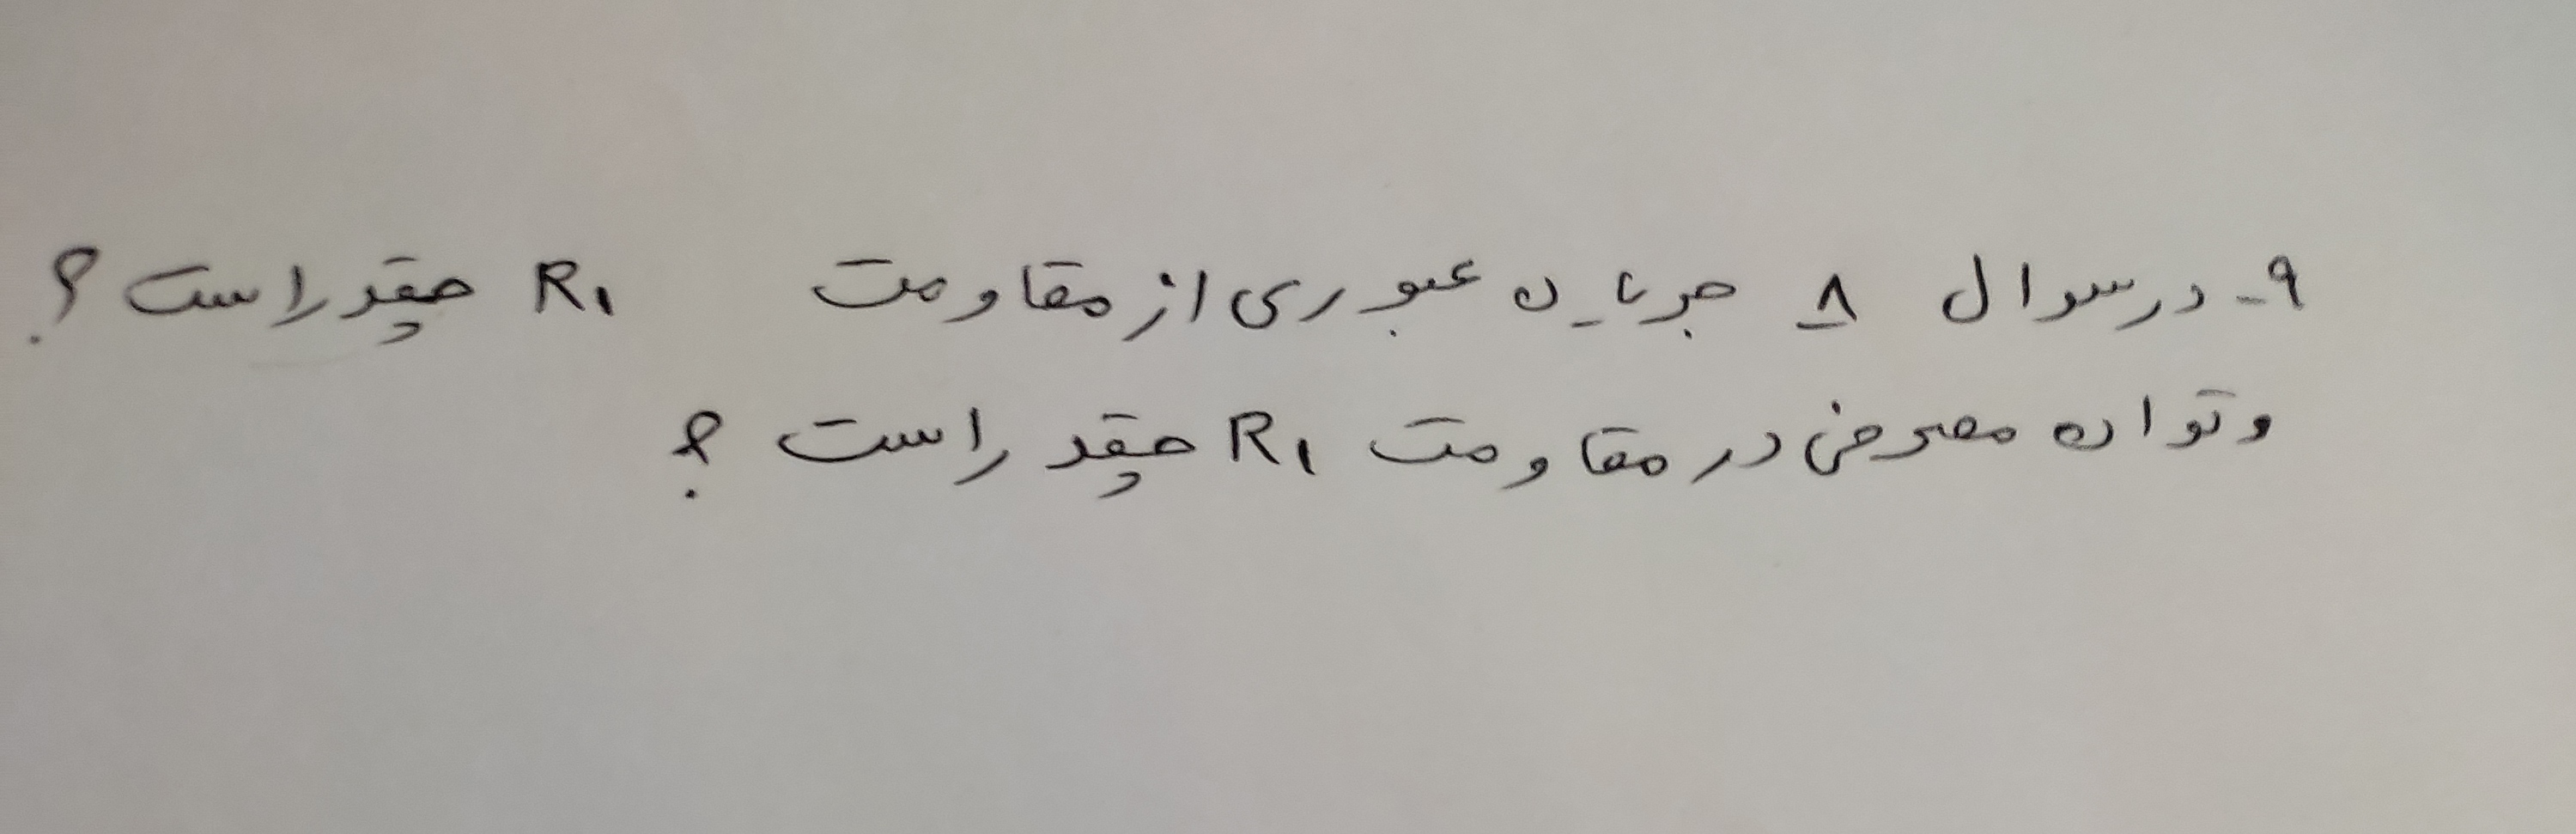 ۹- در سوال ۸ جریان عبوری از مقاومت R۱ چقدر است؟
و توان مصرفی در مقاومت R۱ چقدر است؟